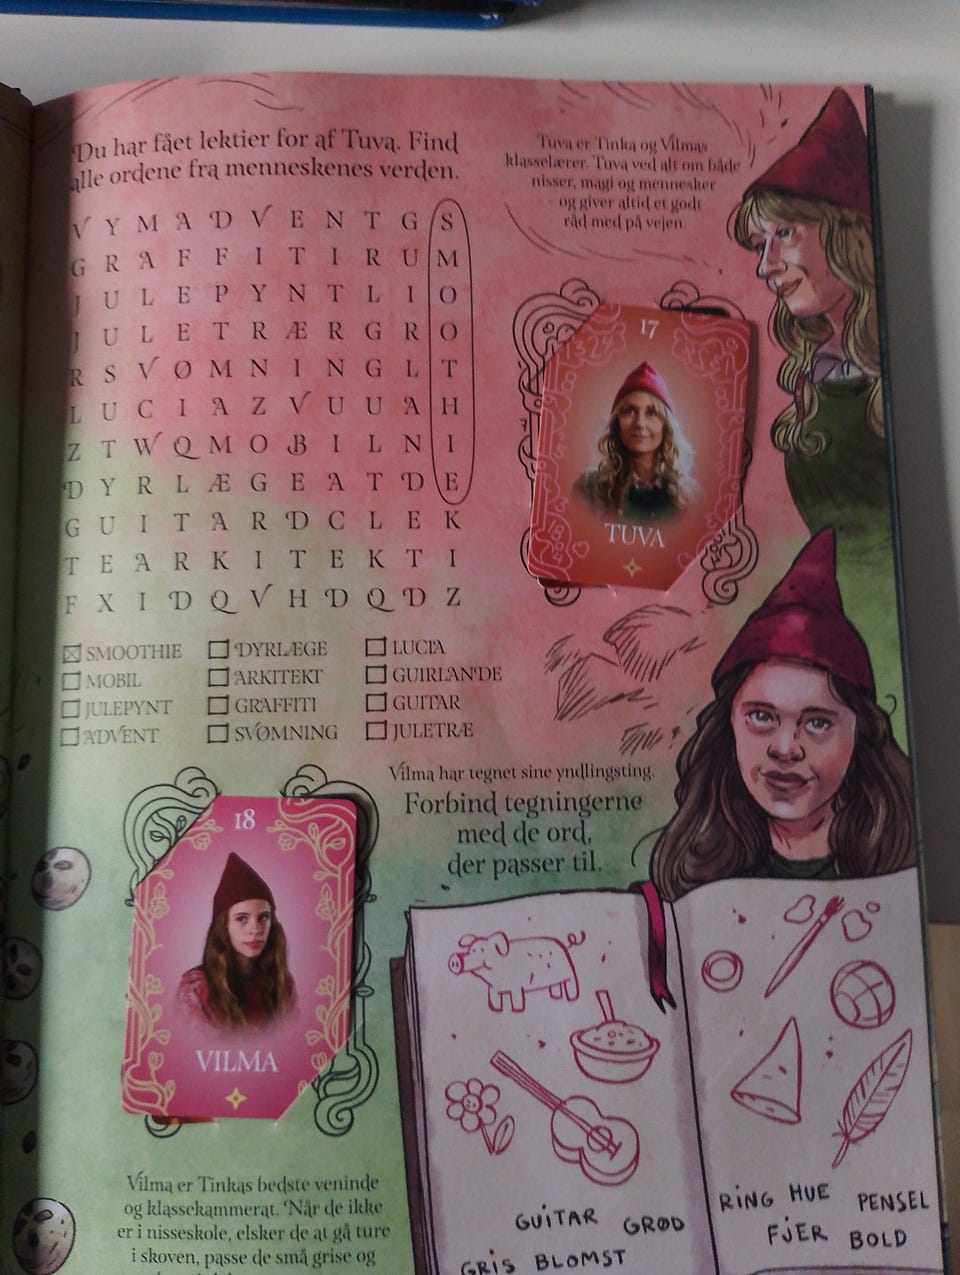 Du har fået lektier for af Tuva. Find
alle ordene fra menneskenes verden.
Tuva er Tinka og Vilmas
klasselærer. Tuva ved alt om både
nisser, magi og mennesker
– og giver altid et godt
råd med på vejen.
V Y M A D V E N T G S
G R A F F I T I R U M
J U L E P Y N T L I O
J U L E T R Æ R G R O
R S V Ø M N I N G L T
L U C I A Z V U U A H
Z T W Q M O B I L N I
D Y R L Æ G E A T D E
G U I T A R D C L E K
T E A R K I T E K T I
F X I D Q V H D Q D Z
17
TUVA
SMOOTHIE DYRLÆGE LUCIA
MOBIL ARKITEKT GUIRLANDE
JULEPYNT GRAFFITI GUITAR
ADVENT SVØMNING JULETRÆ
Vilma har tegnet sine yndlingsting.
Forbind tegningerne
med de ord,
der passer til.
18
VILMA
Vilma er Tinkas bedste veninde
og klassekammerat. Når de ikke
er i nisseskole, elsker de at gå ture
i skoven, passe de små grise og
GUITAR GRØD
GRIS BLOMST
RING HUE PENSEL
FJER BOLD